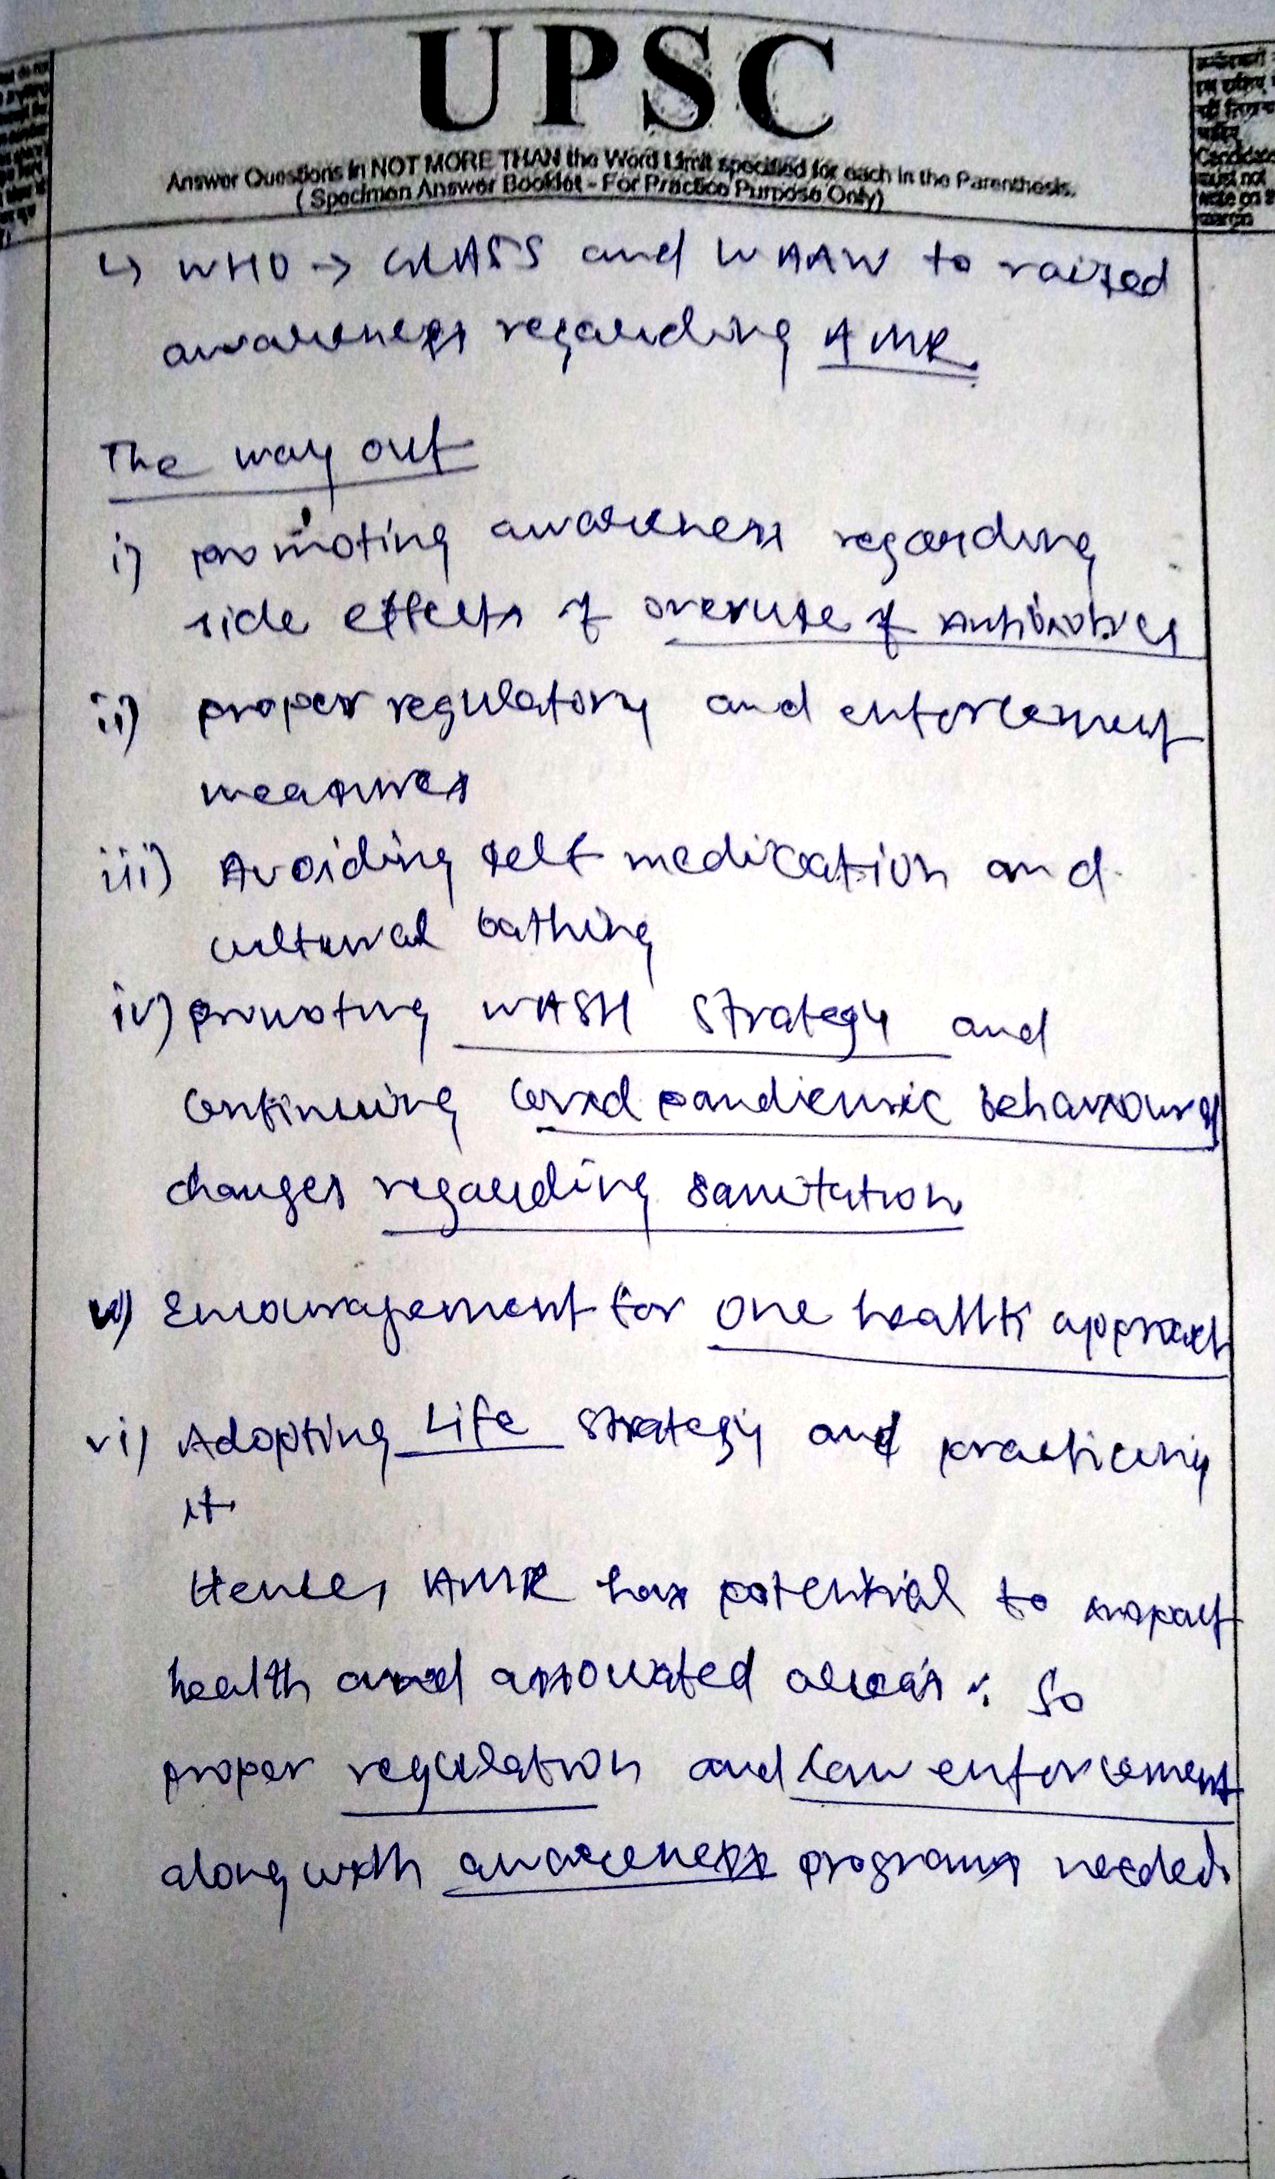 UPSC
Answer Questions in NOT MORE THAN the Word Limit specified for each in the Parenthesis.
( Specimen Answer Booklet - For Practice Purpose Only)
Candidate
must not
write on
margin
↳ WHO → GLASS and WAAW to raised
awareness regarding AMR.
The way out
i) promoting awareness regarding
side effects of overuse of Antibiotics
ii) proper regulatory and enforcement
measures
iii) Avoiding self medication and
cultural bathing
iv) promoting WASH strategy and
continuing covid pandiemic behaviours
changes regarding sanitation
v) Encouragement for one health approach
vi) Adopting Life strategy and practicing
it
Hence, AMR has potential to impact
health and associated areas. So
proper regulation and law enforcement
along with awareness programs needed.